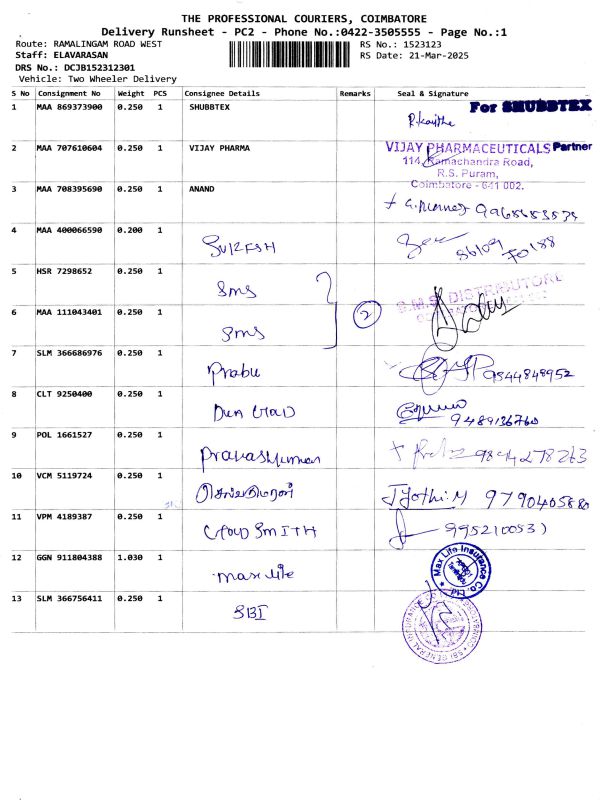 THE PROFESSIONAL COURIERS, COIMBATORE
Delivery Runsheet - PC2 - Phone No.:0422-3505555 - Page No.:1
Route: RAMALINGAM ROAD WEST RS No.: 1523123
Staff: ELAVARASAN RS Date: 21-Mar-2025
DRS No.: DCJB152312301
Vehicle: Two Wheeler Delivery
S No Consignment No Weight PCS Consignee Details Remarks Seal & Signature
1 MAA 869373900 0.250 1 SHUBBTEX For SHUBBTEX
Partner
2 MAA 707610604 0.250 1 VIJAY PHARMA VIJAY PHARMACEUTICALS
114, Ramachandra Road,
R.S. Puram,
Coimbatore - 641 002.
3 MAA 708395690 0.250 1 ANAND
4 MAA 400066590 0.200 1 SURESH
5 HSR 7298652 0.250 1 SMS S.M.S. DISTRIBUTORS
6 MAA 111043401 0.250 1 SMS 2
7 SLM 366686976 0.250 1 Prabu 9344848952
8 CLT 9250400 0.250 1 9489136760
9 POL 1661527 0.250 1 9894278263
10 VCM 5119724 0.250 1 செல்வகுமரன் Jyothi.M 9790405880
11 VPM 4189387 0.250 1 Cloud SMITH
12 GGN 911804388 1.030 1 max life Max Life Insurance Co.
13 SLM 366756411 0.250 1 SBI